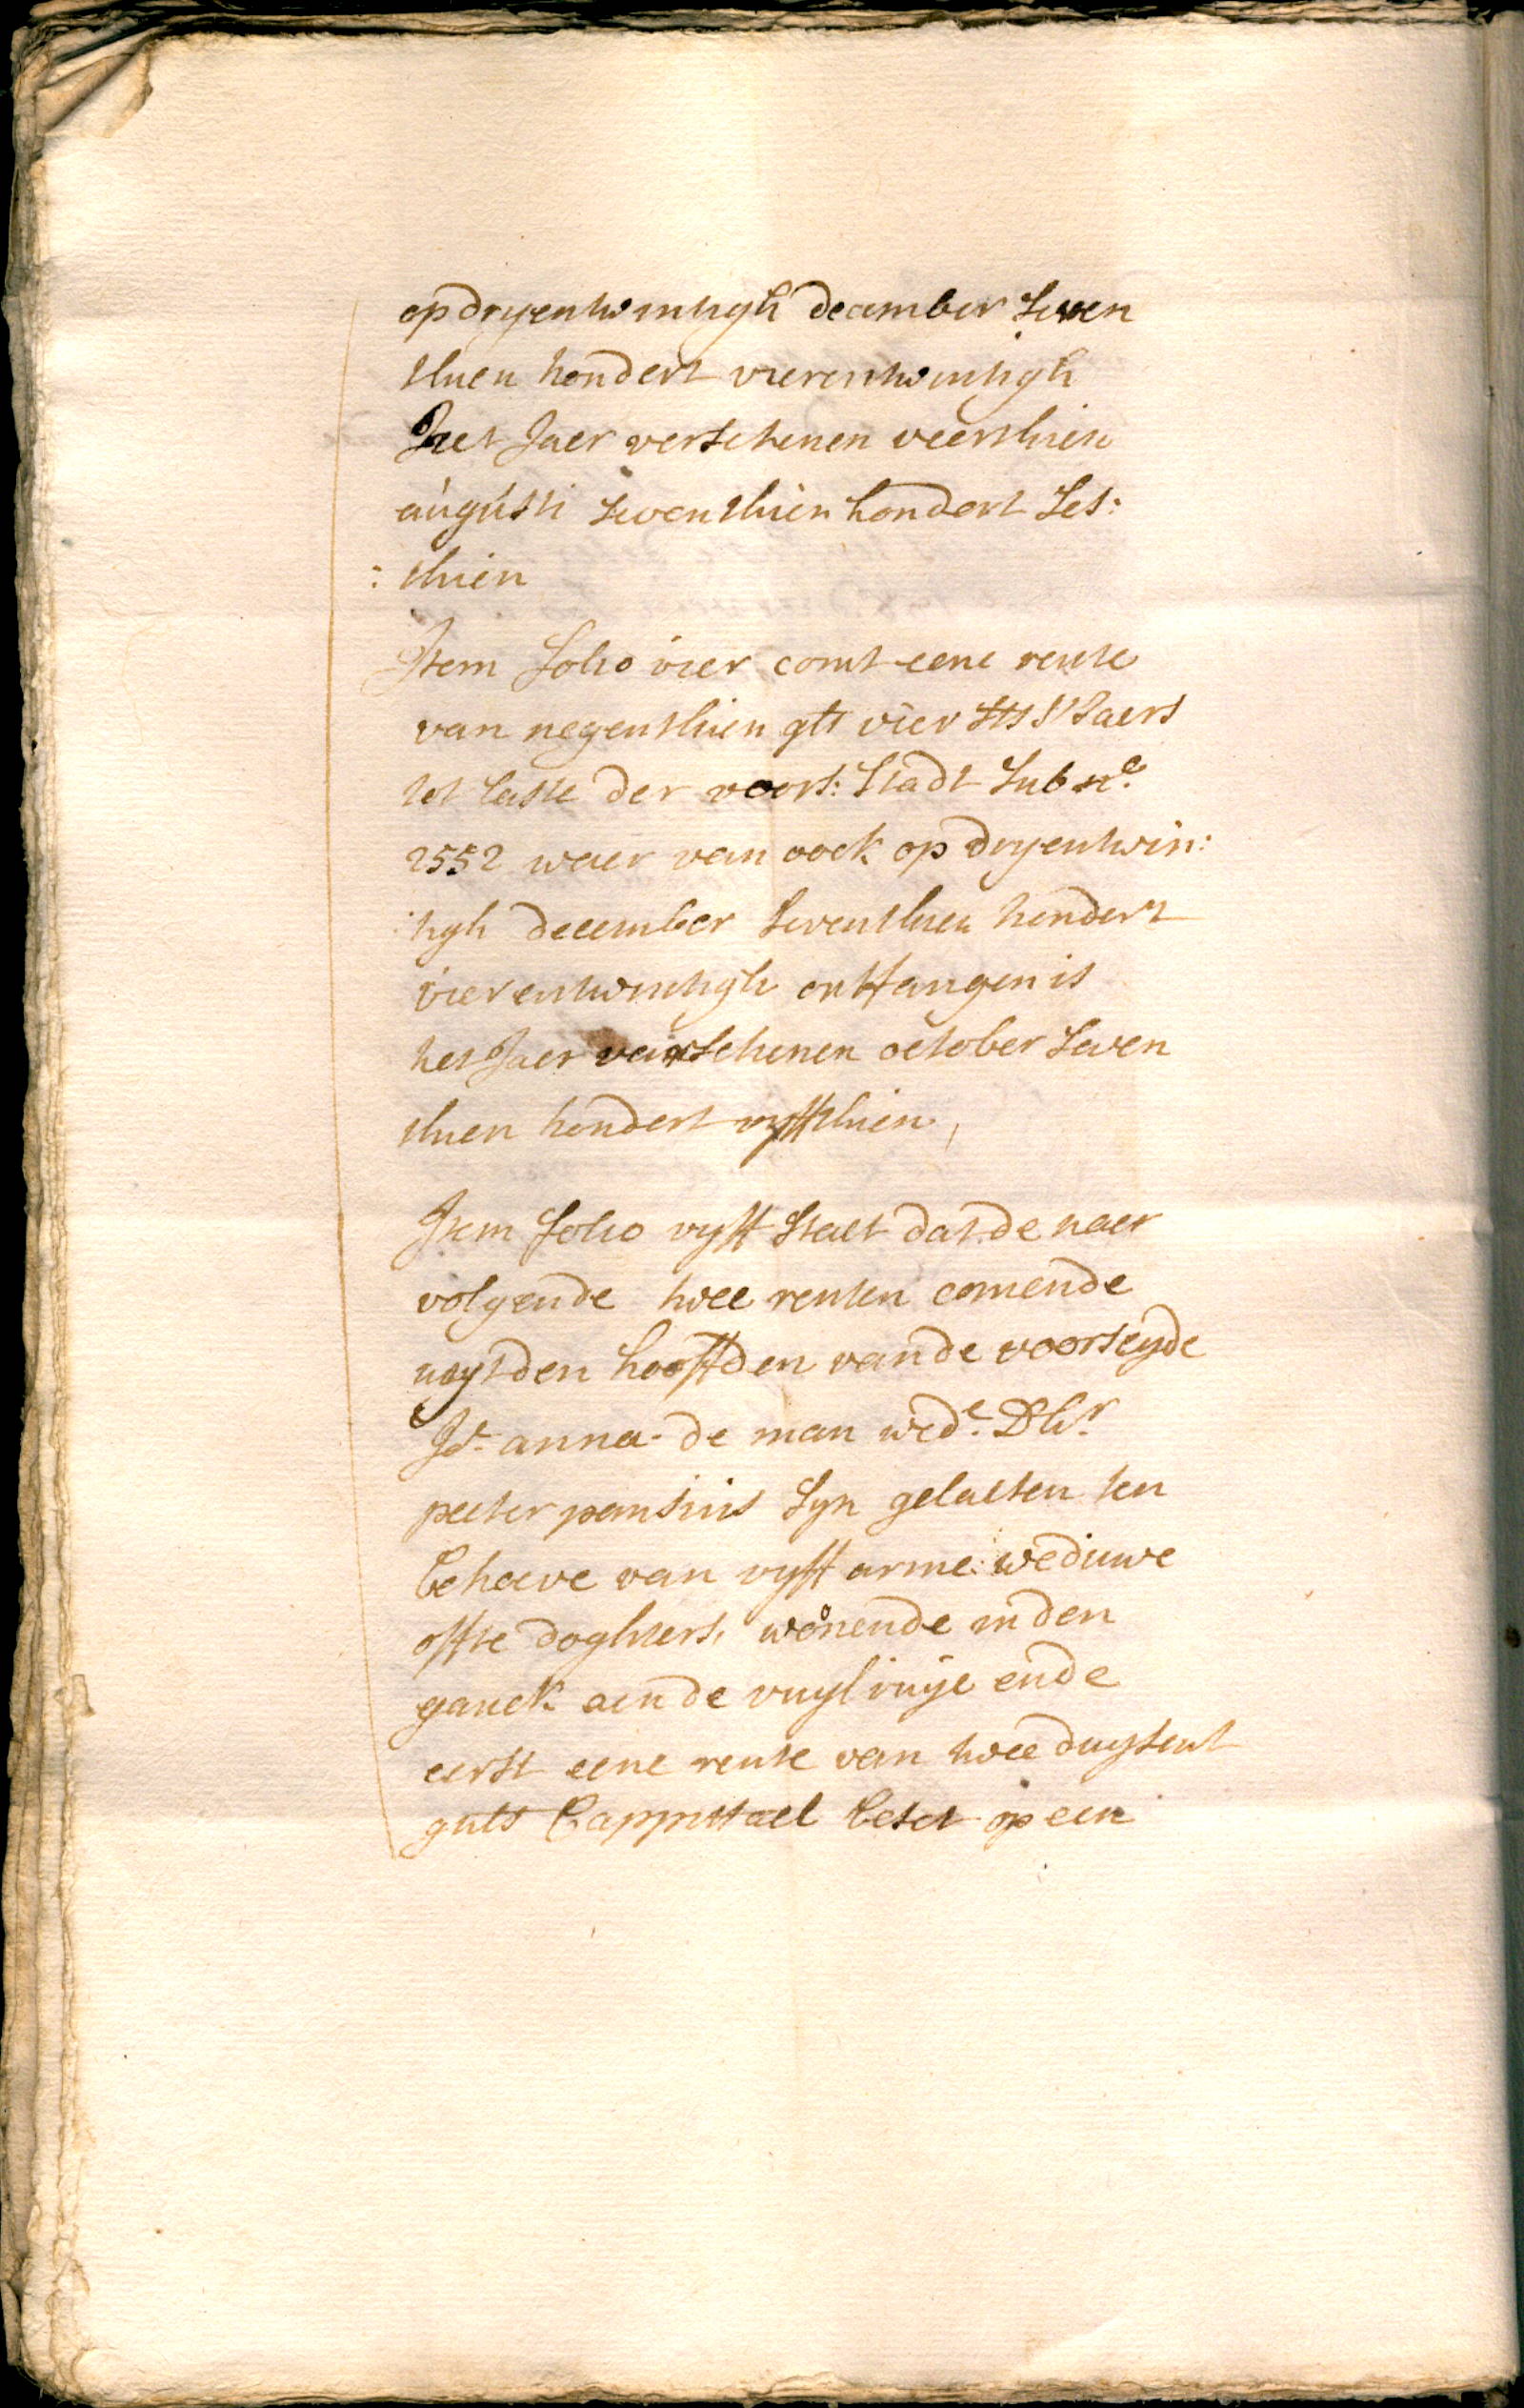 op dryentwintigh december seven
thien hondert vierentwintigh
Het Jaer verschenen veerthien
augusti seventhien hondert ses:
: thien
Item folio vier comt eene rente
van negenthien gls vier sts s'Jaers
tot laste der voors: stadt sub no.
2552 waer van oock op dryentwin:
:tigh december seventhien hondert
vierentwintigh ontfangen is
het Jaer verschenen october seven
thien hondert vyffthien,
Item folio vyff staet dat de naer
volgende twee renten comende
uuyt den hooffden van de voorseyde
Jo. anna de man wede. Dhr.
peeter pansius syn gelaeten ten
behoeve van vyff arme weduwe
offte doghters, wonende in den
ganck aen de vuyl ruye ende
eerst eene rente van twee duysent
guls Cappittael beset op een